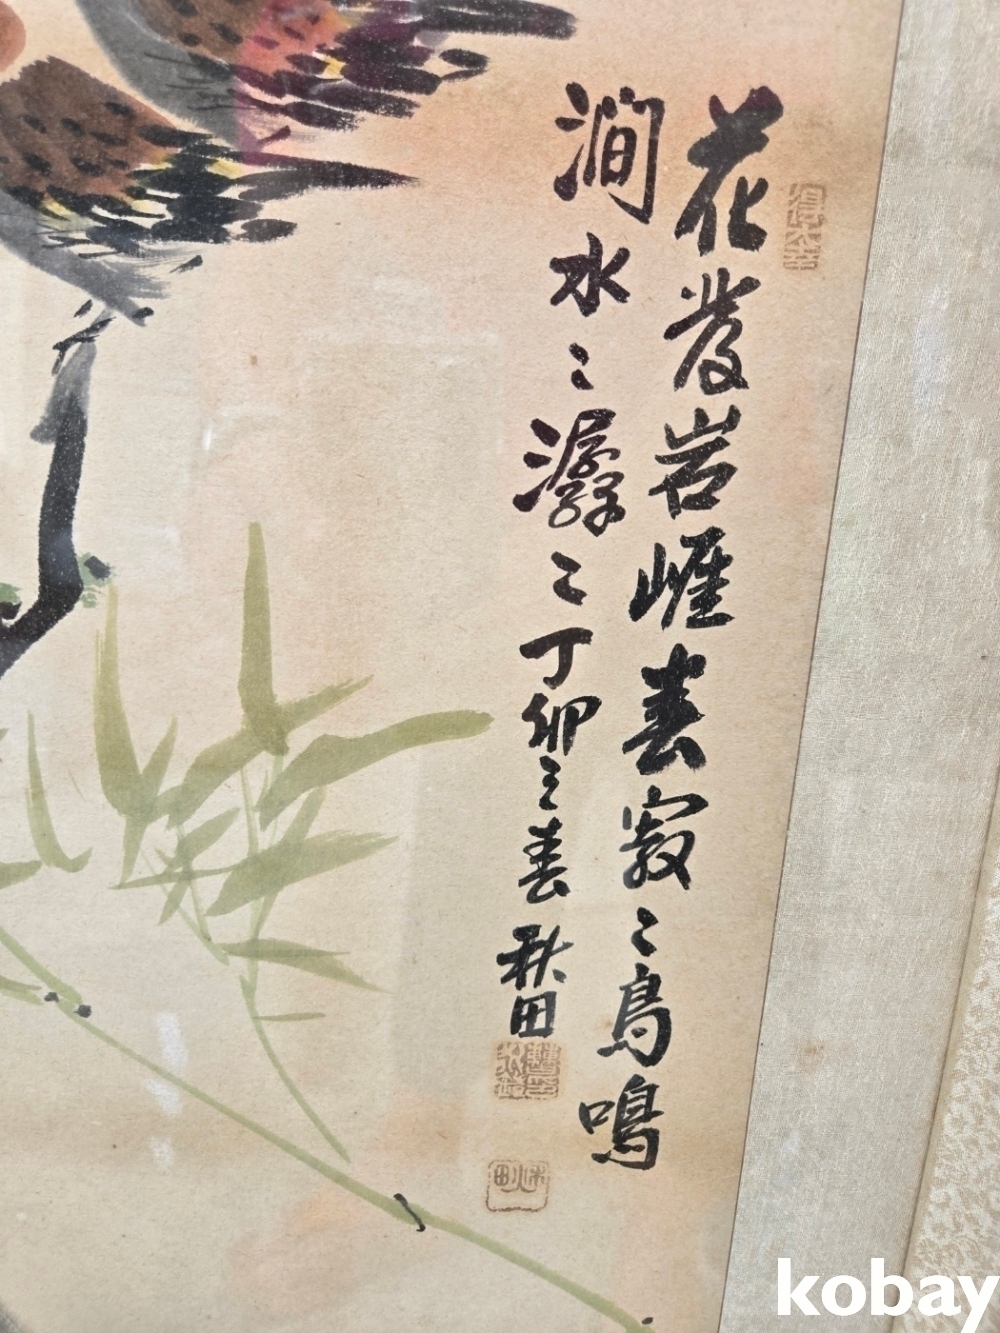 花發岩崖春寂〻鳥鳴
澗水〻潺〻丁卯之春
秋田
秋田
kobay